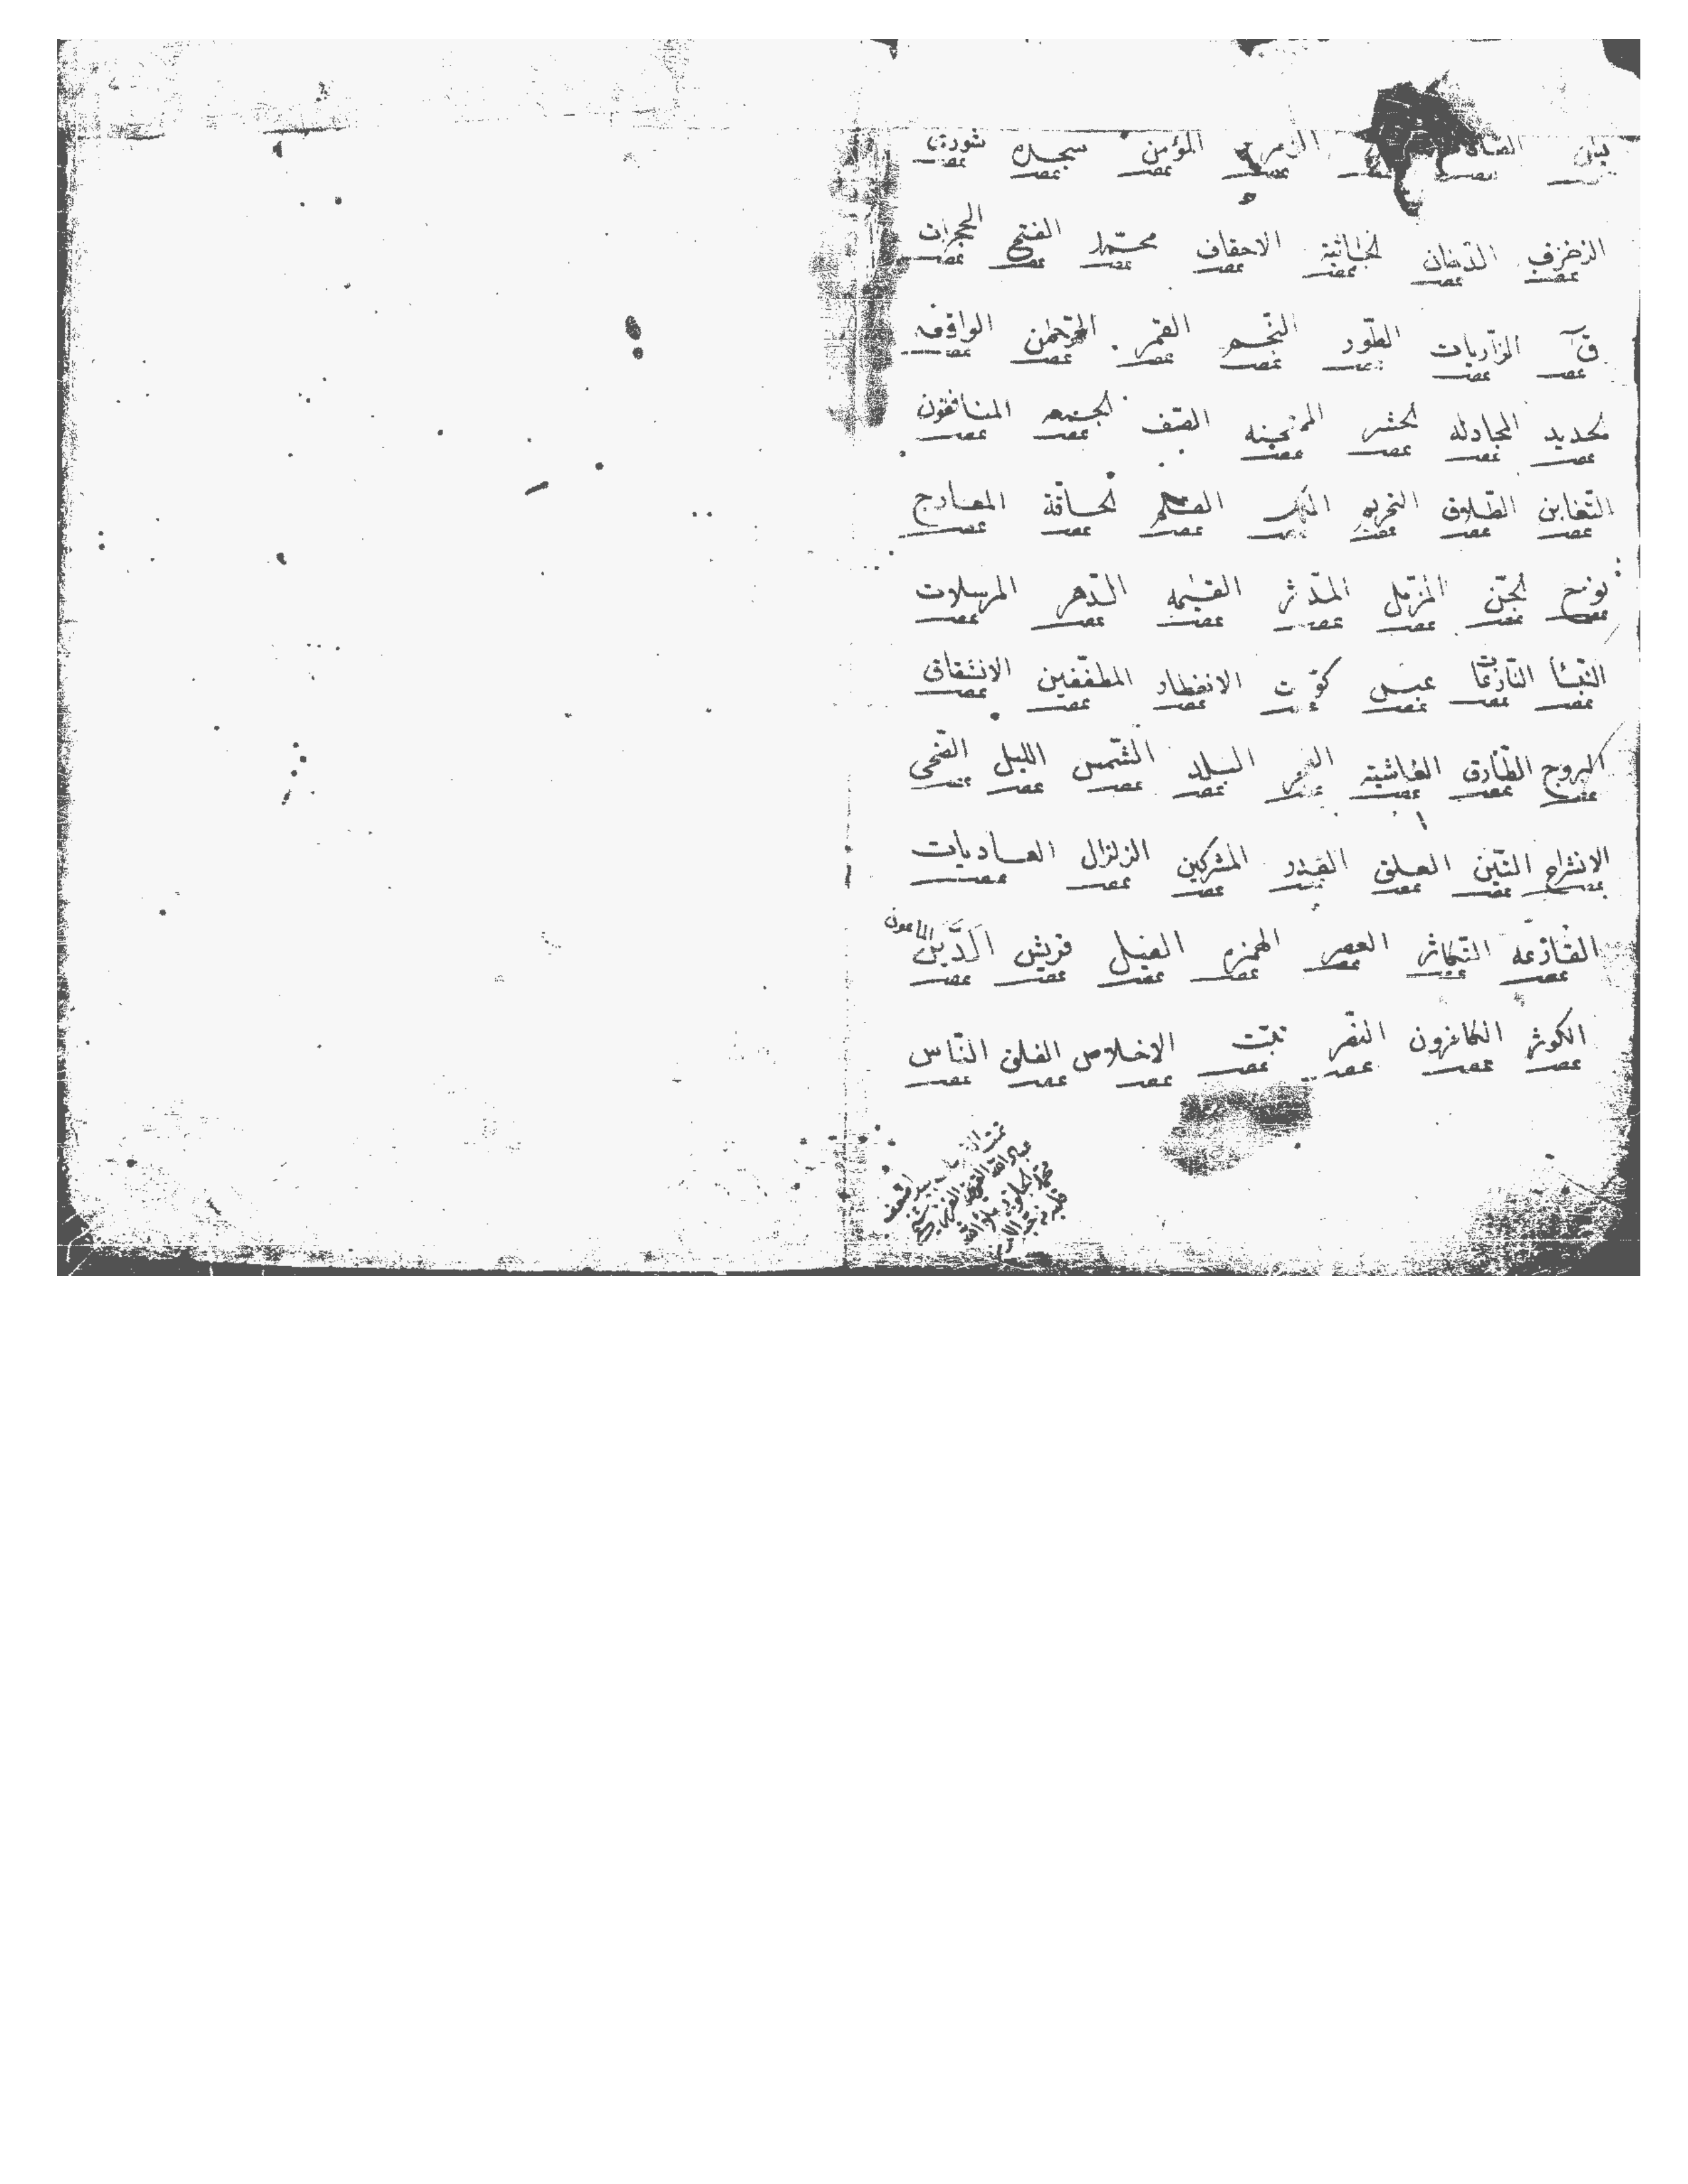 يس الزمر المؤمن سجده شورى
الزخرف الدخان الجاثية الاحقاف محمّد الفتح الحجرات
قٓ الذّاريات الطّور النّجم القمر الرّحمٰن الواقعه
الحديد المجادله الحشر الممتحنه الصّف الجمعه المنافقون
التّغابن الطّلاق التحريم الملك القلم الحاقّة المعارج
نوح الجنّ المزّمّل المدّثر القيٰمه الدّهر المرسلات
النّبأ النّازعات عبس كوّرت الانفطار المطفّفين الانشقاق
البروج الطّارق الغاشية الفجر البلد الشّمس الليل الضّحى
الانشراح التّين العلق القدر المشركين الزلزال العاديات
القارعه التّكاثر العصر الهمزه الفيل قريش الدّين الماعون
الكوثر الكافرون النصر تبّت الاخلاص الفلق النّاس